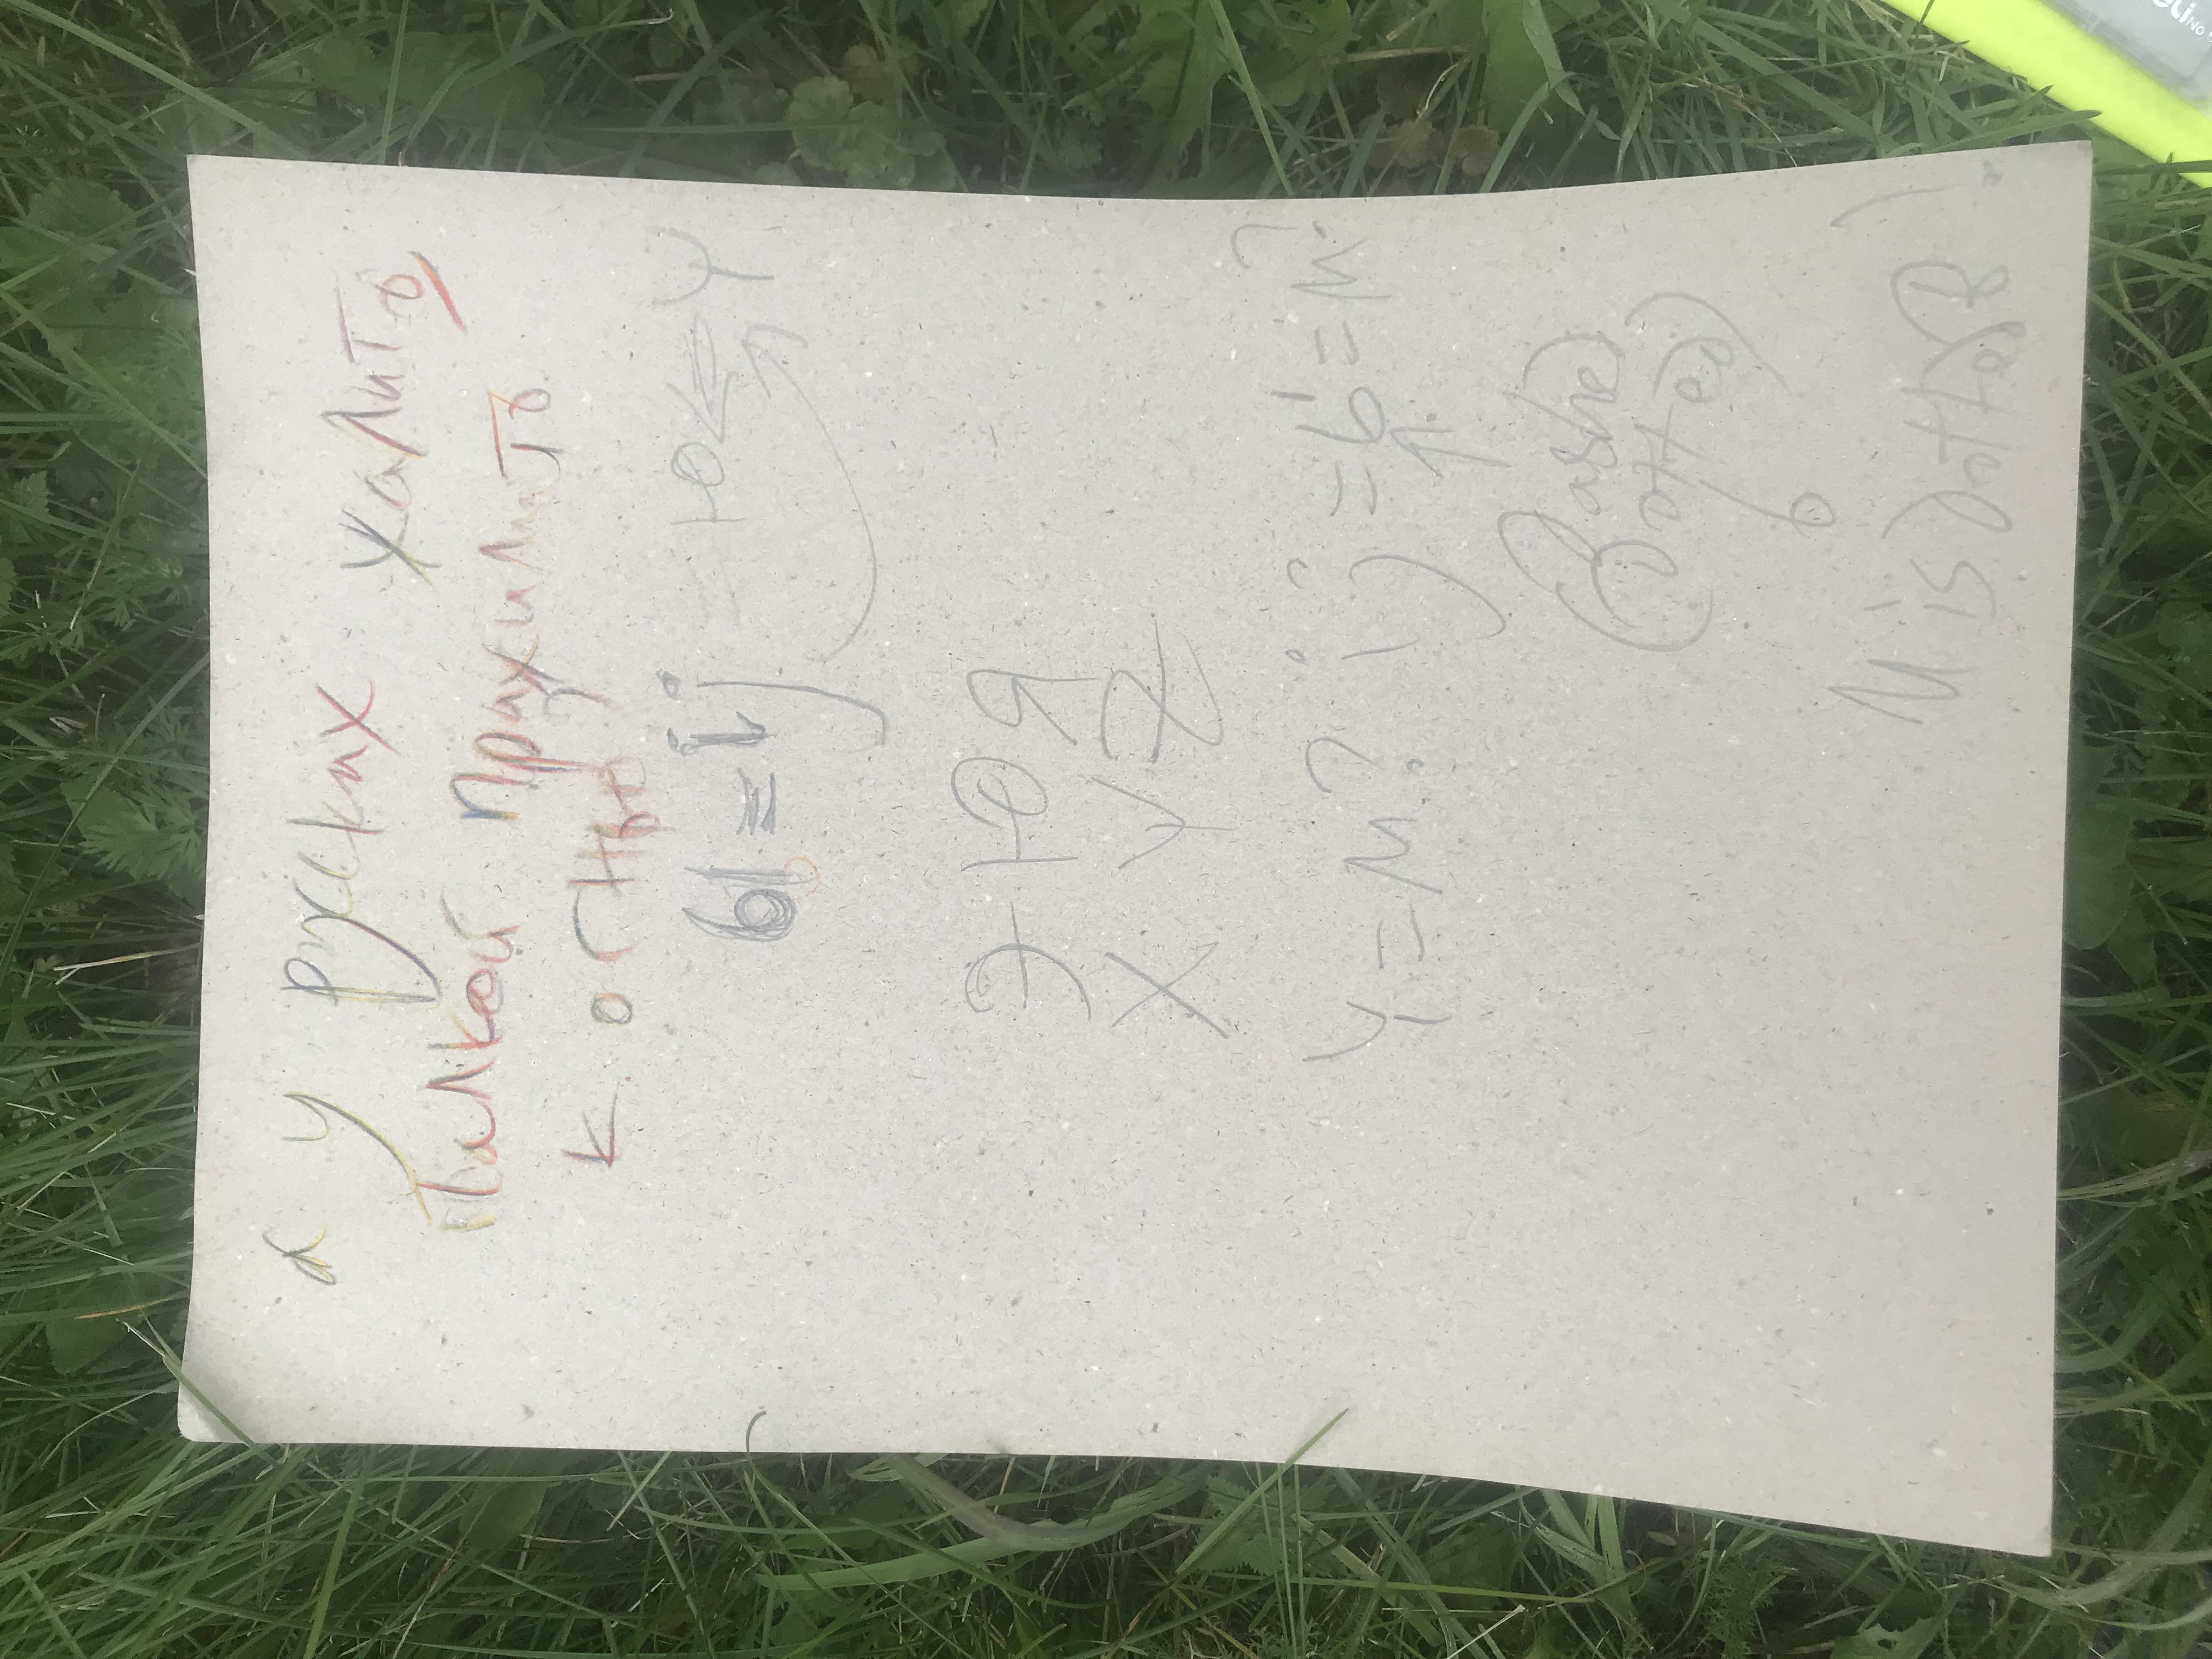 а у русских халить
палкой прихилить
к огнью?
Ы = ij = Ю <= Y
Э Ю Я
X Y Z
Y = И? ij = Ь' = И?
Dashed
(Dotted)
Ь
И is dotted B!